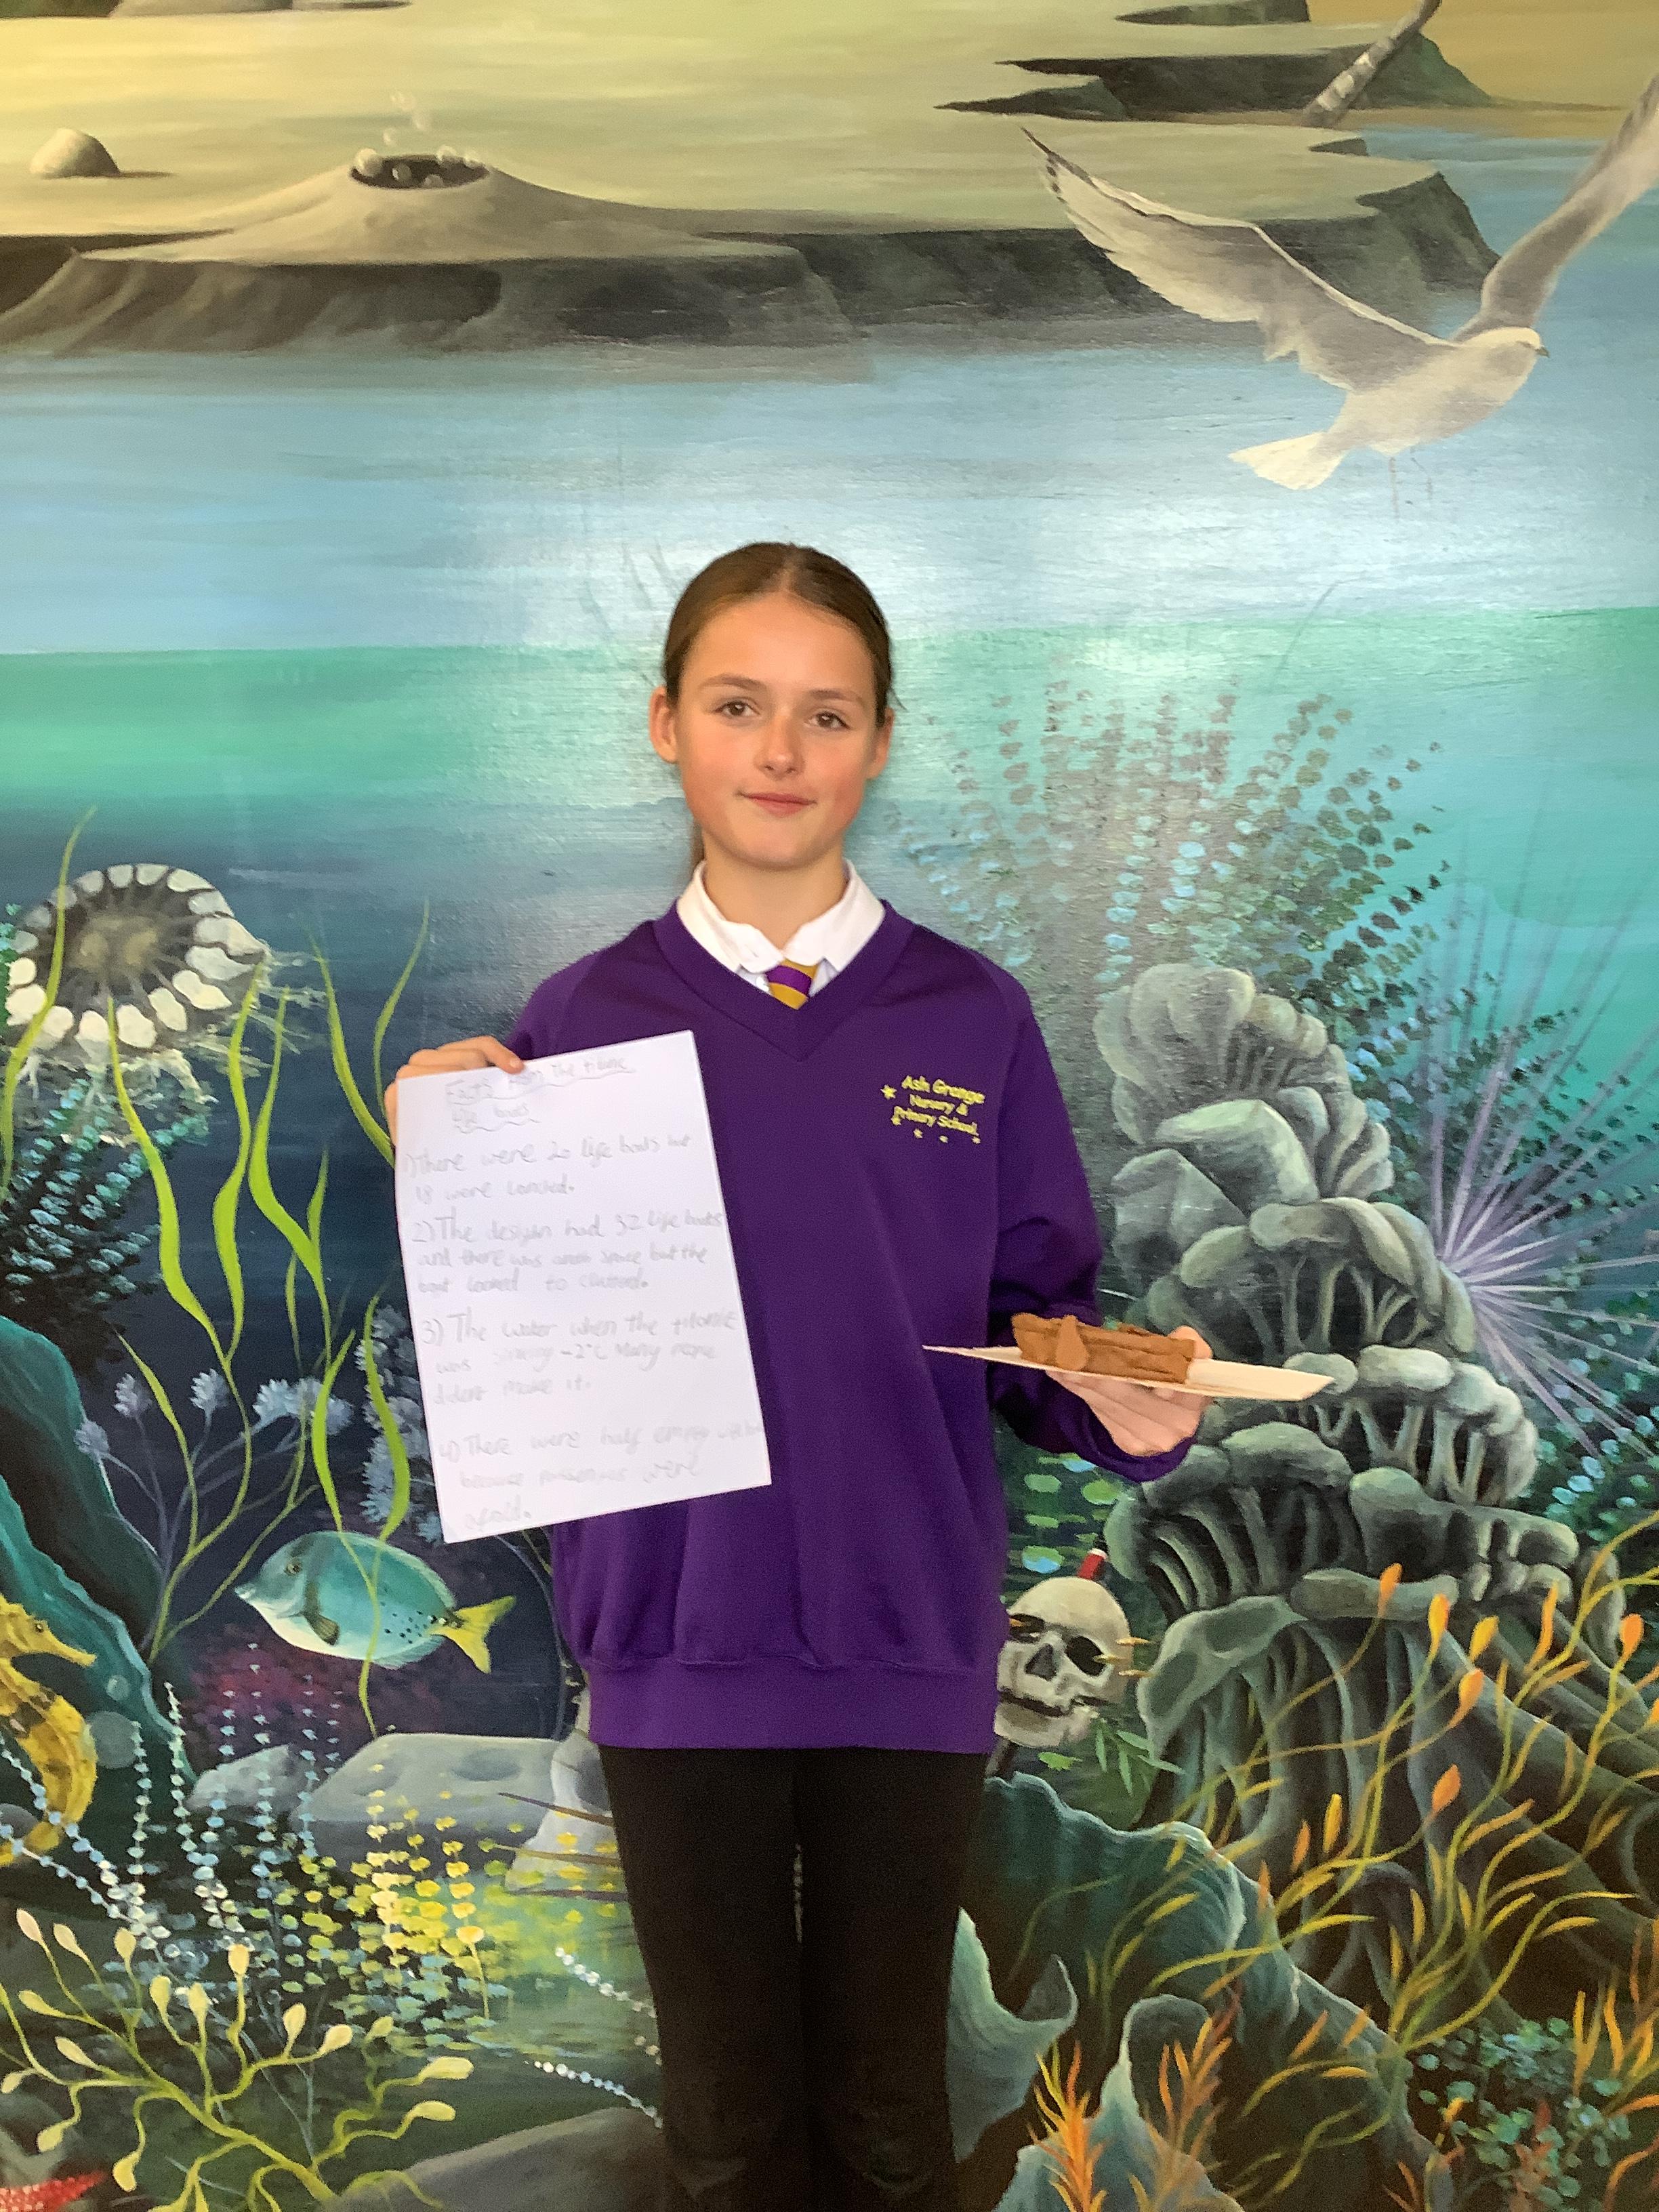 Facts from the titanic
life boats
1) There were 20 life boats but
18 were
2) The desighn had 32 life boats
and there was space but the
boat looked to
3) The water when the titanic
was -2°C Many
make it.
4) There were half empty
because were
Ash Grange
Nursery &
Primary School